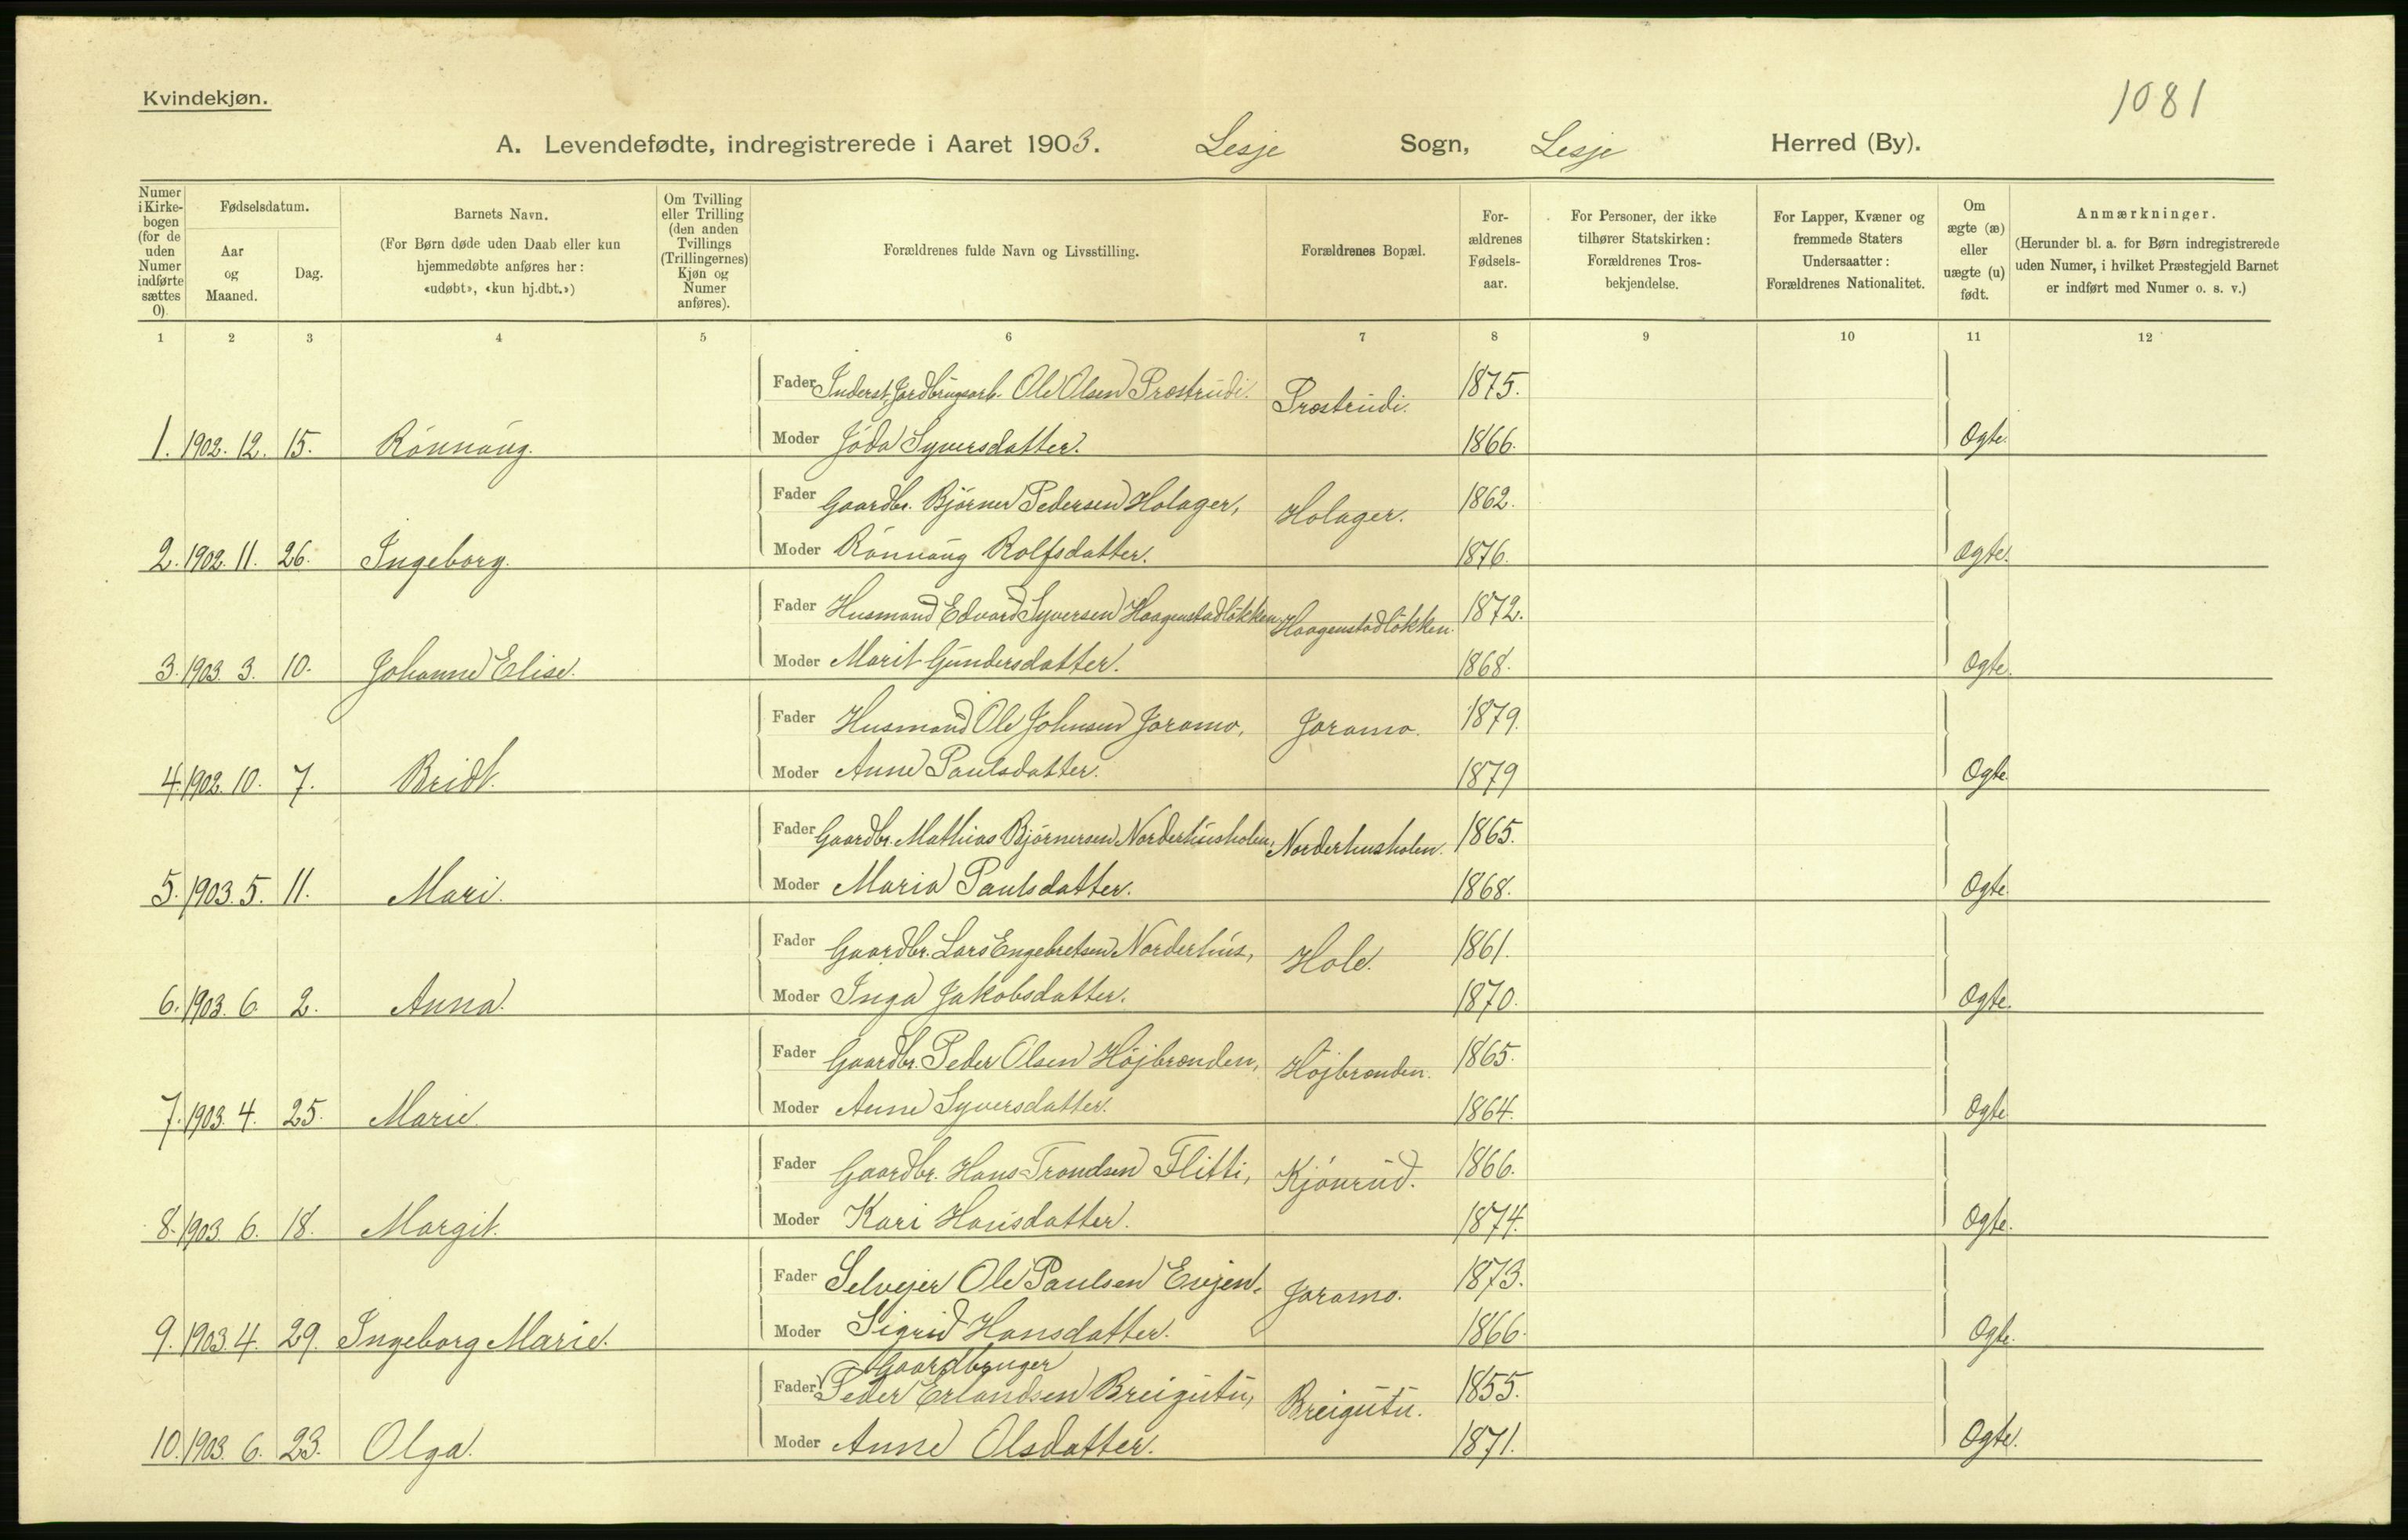 Kvindekjøn.
1081
A. Levendefødte, indregistrerede i Aaret 1903. Lesje Sogn, Lesje Herred (By).
Numer i Kirke-bogen (for de uden Numer indførte sættes 0)
Fødselsdatum.
Aar og Maaned.
Dag.
Barnets Navn.
(For Børn døde uden Daab eller kun hjemmedøbte anføres her: «udøbt», «kun hj.dbt.»)
Om Tvilling eller Trilling (den anden Tvillings (Trillingernes) Kjøn og Numer anføres).
Forældrenes fulde Navn og Livsstilling.
Forældrenes Bopæl.
For-ældrenes Fødsels-aar.
For Personer, der ikke tilhører Statskirken: Forældrenes Tros-bekjendelse.
For Lapper, Kvæner og fremmede Staters Undersaatter: Forældrenes Nationalitet.
Om ægte (æ) eller uægte (u) født.
Anmærkninger.
(Herunder bl. a. for Børn indregistrerede uden Numer, i hvilket Præstegjeld Barnet er indført med Numer o. s. v.)
1 2 3 4 5 6 7 8 9 10 11 12
Fader Inderst, Jordbrugsarb. Ole Olsen Prostrudi. Prostrudi. 1875.
1. 1902. 12. 15. Rønnaug. Moder Jóda Syversdatter. 1866. Ægte.
Fader Gaardbr. Bjørner Pedersen Holager, Holager. 1862.
2. 1902. 11. 26. Ingeborg. Moder Rønnaug Rolfsdatter. 1876. Ægte.
Fader Husmand Edvard Syversen Haagenstadløkken, Haagenstadløkken. 1872.
3. 1903. 3. 10. Johanne Elise. Moder Marit Gundersdatter. 1868. Ægte.
Fader Husmand Ole Johnsen Joramo, Joramo. 1879.
4. 1902. 10. 7. Bridt. Moder Anne Paulsdatter. 1879 Ægte.
Fader Gaardbr. Mathias Bjørnersen Norderhusholen, Norderhusholen. 1865.
5. 1903. 5. 11. Mari. Moder Maria Paulsdatter. 1868. Ægte.
Fader Gaardbr. Lars Engebretsen Norderhus, Hole. 1861.
6. 1903. 6. 2. Anna. Moder Inga Jakobsdatter. 1870. Ægte.
Fader Gaardbr. Peder Olsen Højbrænden, Højbrænden. 1865.
7. 1903. 4. 25. Marie. Moder Anne Syversdatter. 1864. Ægte
Fader Gaardbr. Hans Trondsen Flitti, Kjønrud. 1866.
8. 1903. 6. 18. Margit. Moder Kari Hansdatter. 1874. Ægte.
Fader Selvejer Ole Paulsen Enjen. Joramo. 1873.
9. 1903. 4. 29. Ingeborg Marie. Moder Sigrid Hansdatter. 1866. Ægte.
Gaardbruger
Fader Peder Erlandsen Breigutu, Breigutu. 1855.
10. 1903. 6. 23. Olga. Moder Anne Olsdatter. 1871. Ægte.